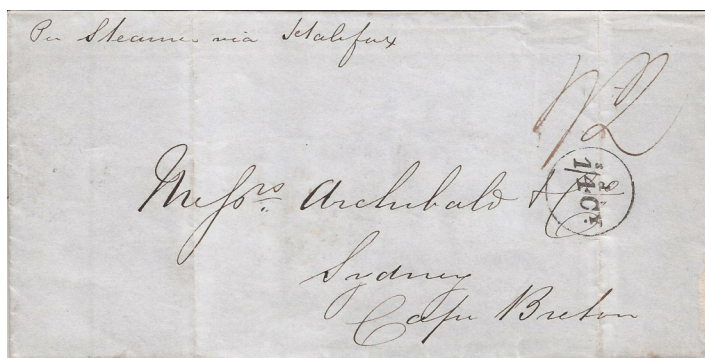 Per Steamer via Halifax
1/2
Messrs Archibald & Co
1/4 Cy.
Sydney
Cape Breton